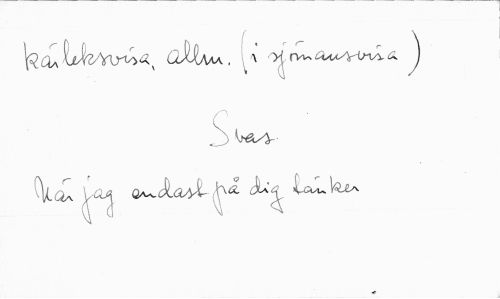 kärleksvisa, allm. (i sjömansvisa)
Svas.
När jag endast på dig tänker